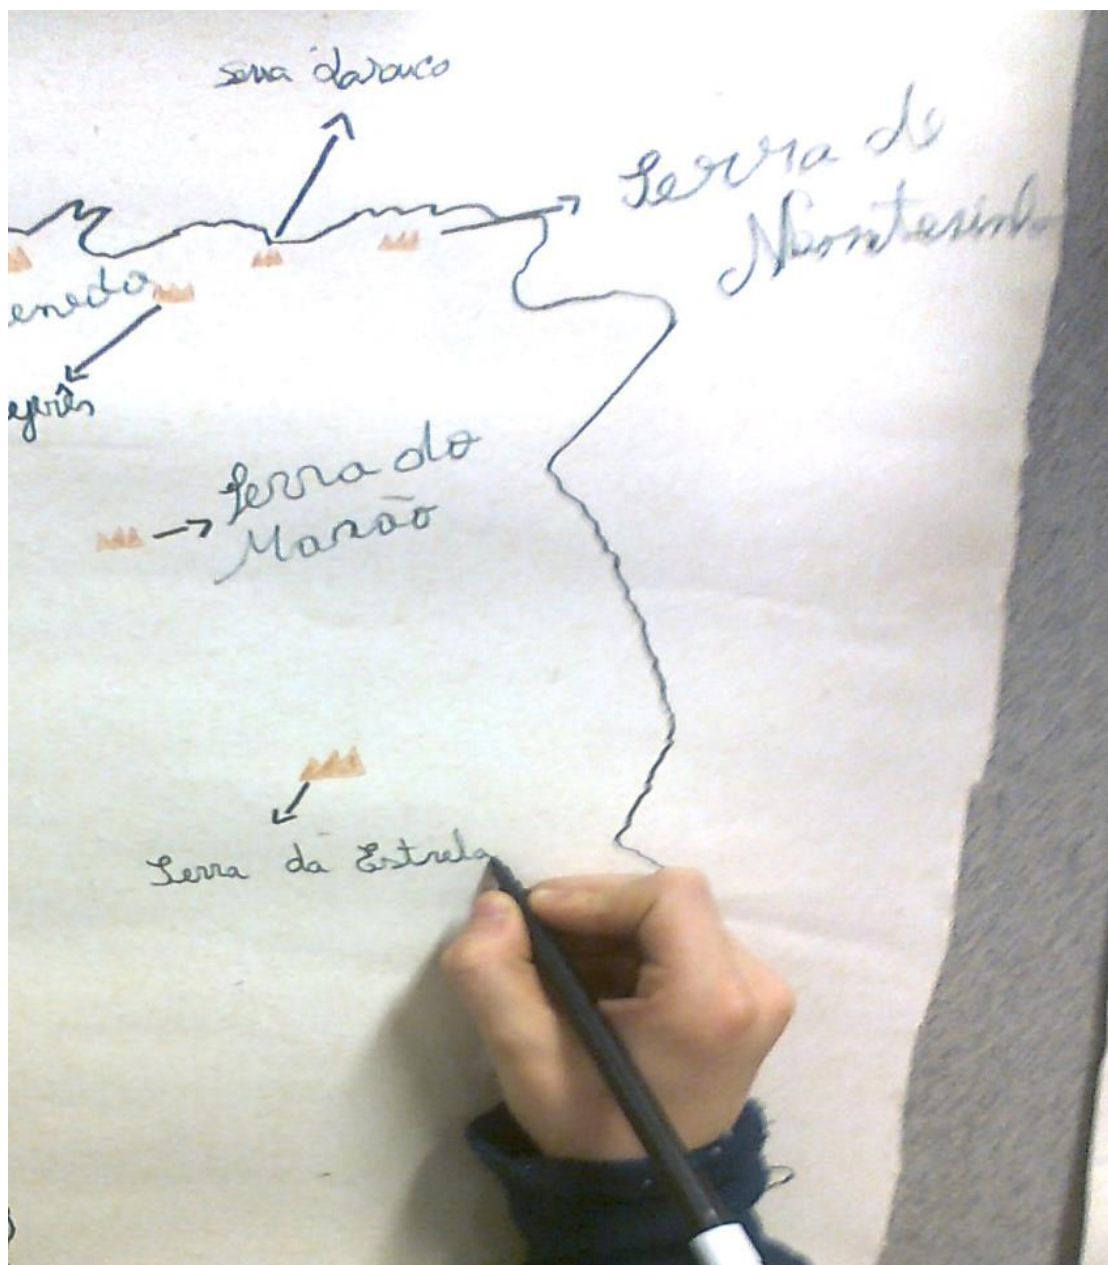 serra Larouco
Serra de
Montesinho
eneda
gerês
Serra do
Marão
Serra da Estrela